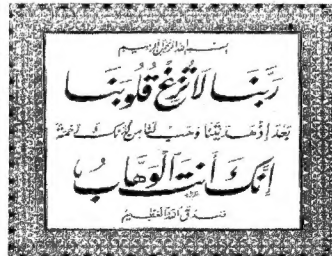 بسم الله الرحمن الرحيم
رَبَّنَا لَا تُزِغْ قُلُوبَنَا
بَعْدَ إِذْ هَدَيْتَنَا وَهَبْ لَنَا مِنْ لَدُنْكَ رَحْمَةً
إِنَّكَ أَنْتَ الْوَهَّابُ
صدق الله العظيم